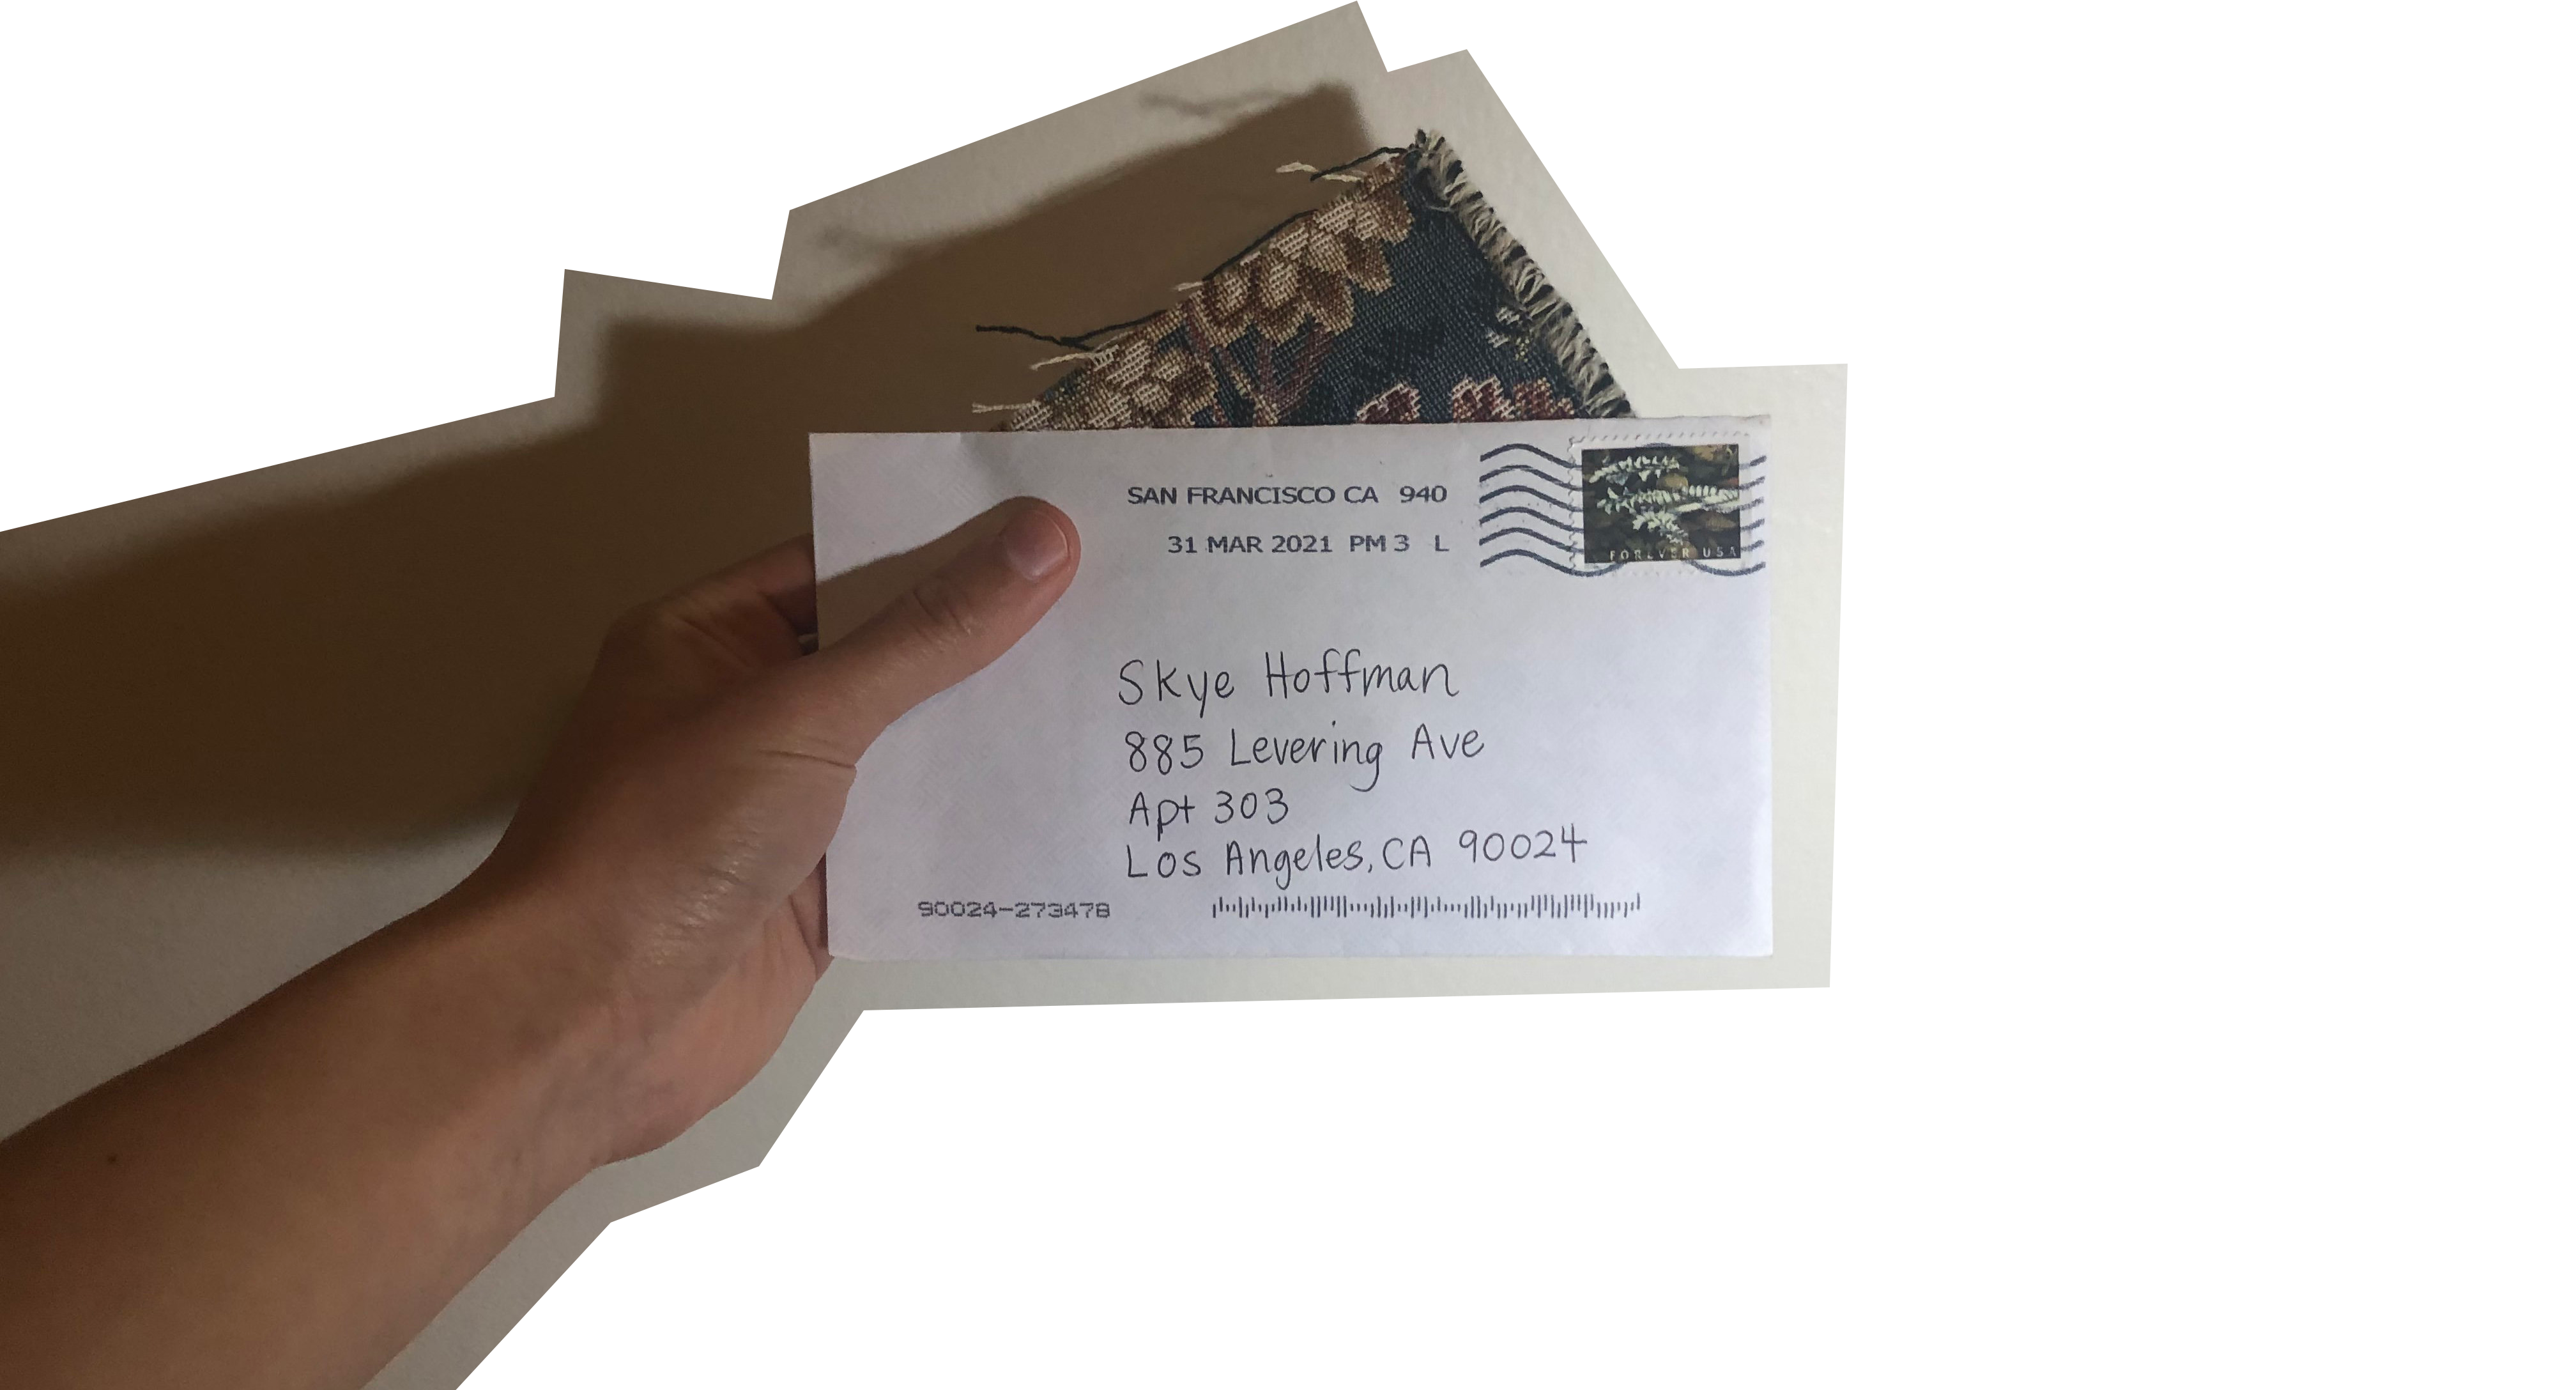 SAN FRANCISCO CA 940
31 MAR 2021 PM 3 L
FOREVER USA
Skye Hoffman
885 Levering Ave
Apt 303
Los Angeles, CA 90024
90024-273478